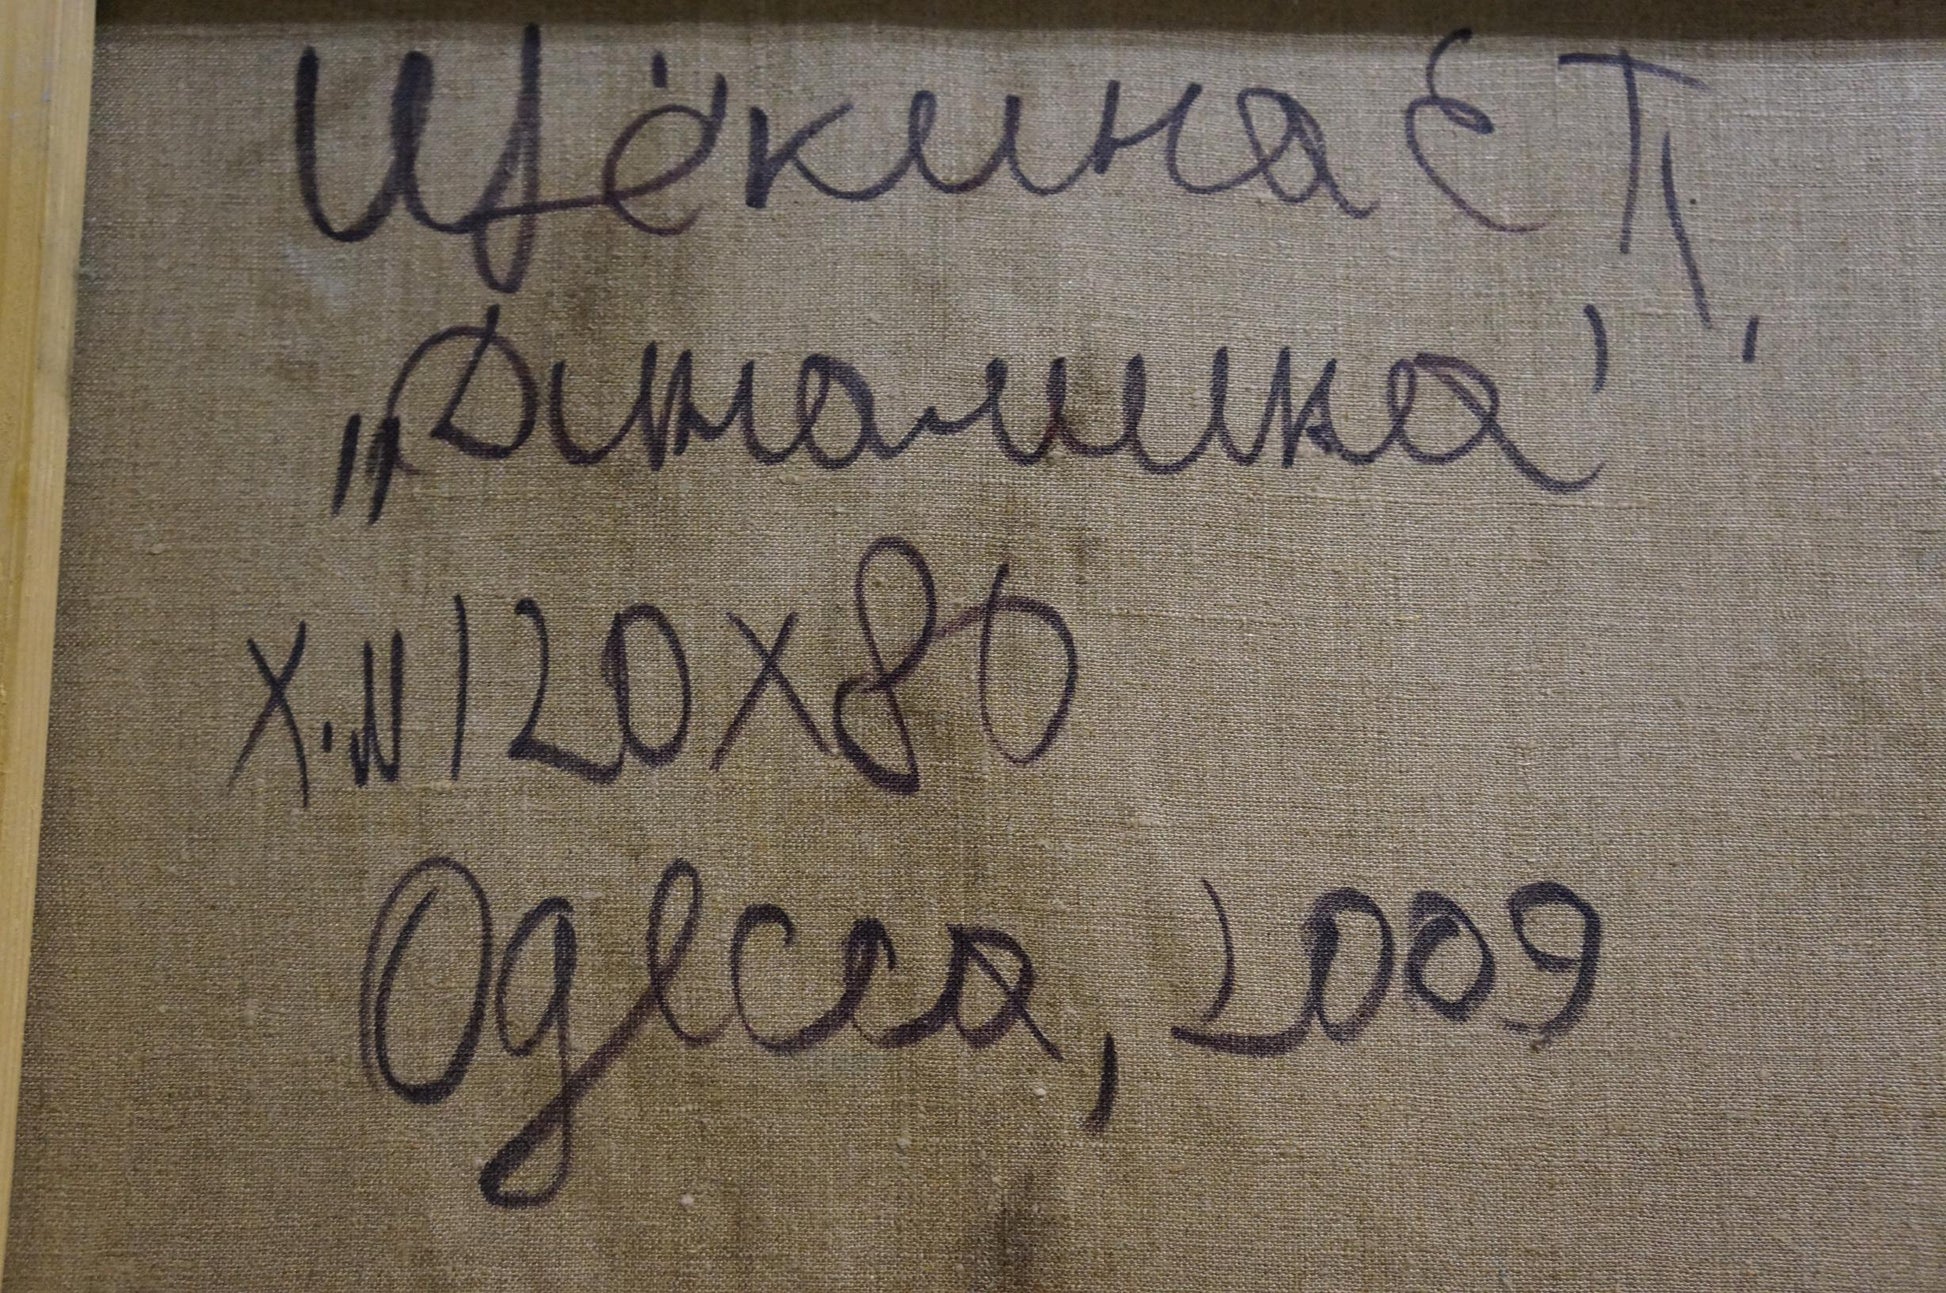 Щёкина Е П,
„Динамика"
х.м 120х80
Одесса, 2009